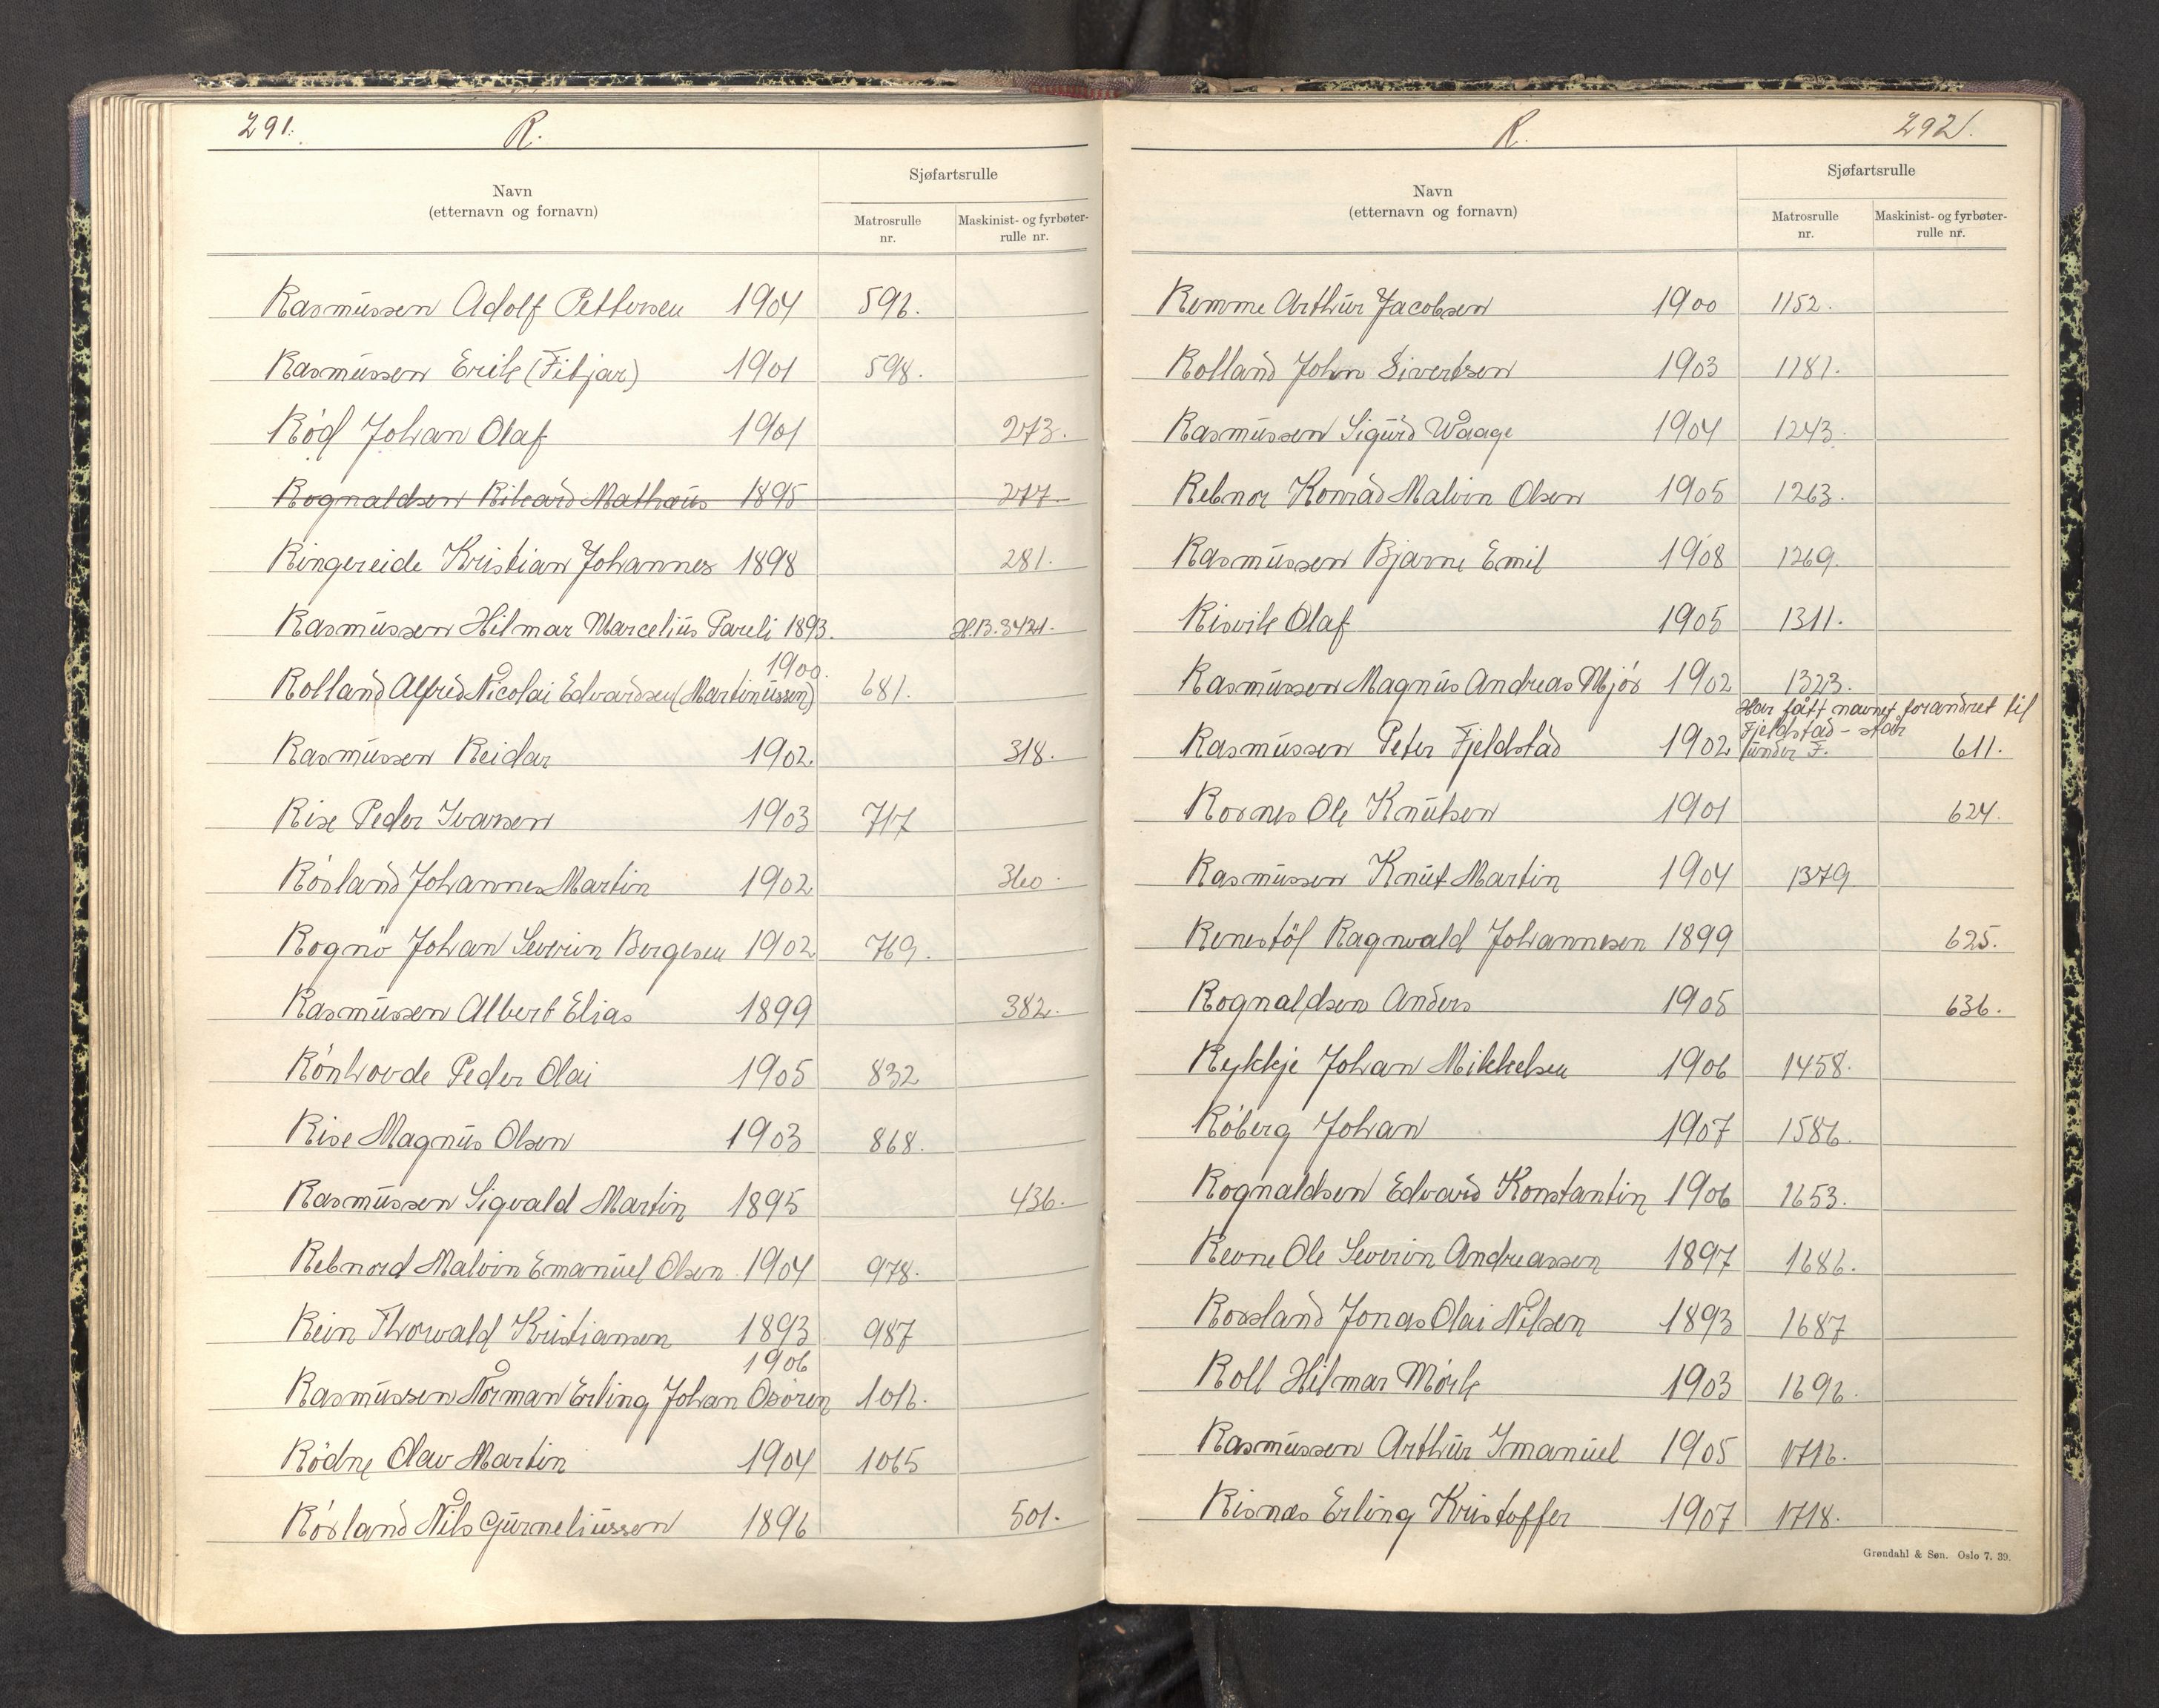 291.
R.
Navn
(etternavn og fornavn)
Sjøfartsrulle
Matrosrulle
nr.
Maskinist- og fyrbøter-
rulle nr.
Rasmussen Adolf Pettersen 1904 596.
Rasmussen Erik (Fitjar) 1901 598.
Röd Johan Olaf 1901 273.
Rognaldsen Rikard Mathæus 1895 277.
Ringereide Kristian Johannes 1898 281.
Rasmussen Hilmar Marcelius Pareli 1893. H.B.3421.
1900.
Rolland Alfred Nicolai Edvardsen (Martinussen) 681.
Rasmussen Reidar 1902. 318.
Rise Peder Ivarsen 1903 717
Rösland Johannes Martin 1902 360.
Rognö Johan Severin Bergesen 1902 769.
Rasmussen Albert Elias 1899 382.
Rönhovde Peder Olai 1905 832
Rise Magnus Olsen 1903 868.
Rasmussen Sigvald Martin 1895 436.
Rebnord Malvin Emanuel Olsen 1904 978.
Rein Thorvald Kristiansen 1893 987
1906
Rasmussen Norman Erling Johan Osören 1016.
Rödne Olav Martin 1904 1065
Rösland Nils Gurneliussen 1896 501.
R.
292.
Navn
(etternavn og fornavn)
Sjøfartsrulle
Matrosrulle
nr.
Maskinist- og fyrbøter-
rulle nr.
Remme Arthur Jacobsen 1900 1152.
Rolland John Sivertsen 1903 1181.
Rasmussen Sigurd Waage 1904 1243.
Rebnor Konrad Malvin Olsen 1905 1263.
Rasmussen Bjarne Emil 1908 1269.
Risvik Olaf 1905 1311.
Rasmussen Magnus Andreas Mjös 1902 1323.
Har fått navnet forandret til
Fjeldstad - står
Rasmussen Peter Fjeldstad 1902 under F. 611.
Rosnes Ole Knutsen 1901 624.
Rasmussen Knut Martin 1904 1379
Renestöl Ragnvald Johannesen 1899 625.
Rognaldsen Anders 1905 636.
Rykkje Johan Mikkelsen 1906 1458.
Röberg Johan 1907 1586.
Rognaldsen Edvard Konstantin 1906 1653.
Revne Ole Severin Andreassen 1897 1686.
Rossland Jonas Olai Nilsen 1893 1687
Roll Hilmar Mörk 1903 1696.
Rasmussen Arthur Imanuel 1905 1716.
Risnes Erling Kristoffer 1907 1718.
Grøndahl & Søn. Oslo 7. 39.